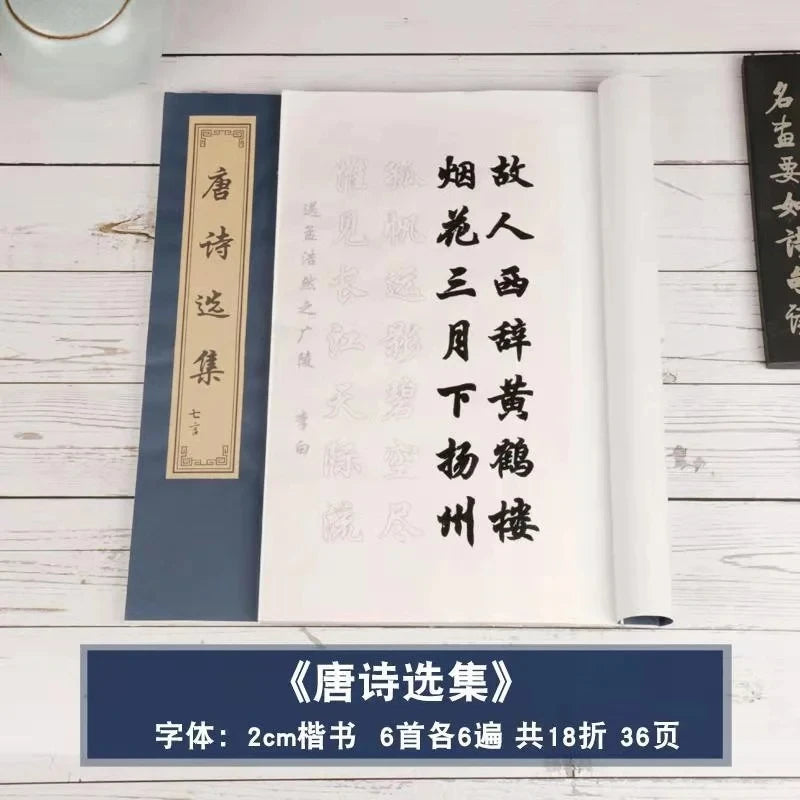 唐诗选集
七言
故人西辞黄鹤楼
烟花三月下扬州
孤帆远影碧空尽
唯见长江天际流
送孟浩然之广陵 李白
名画要如诗句读
《唐诗选集》
字体：2cm楷书 6首各6遍 共18折 36页